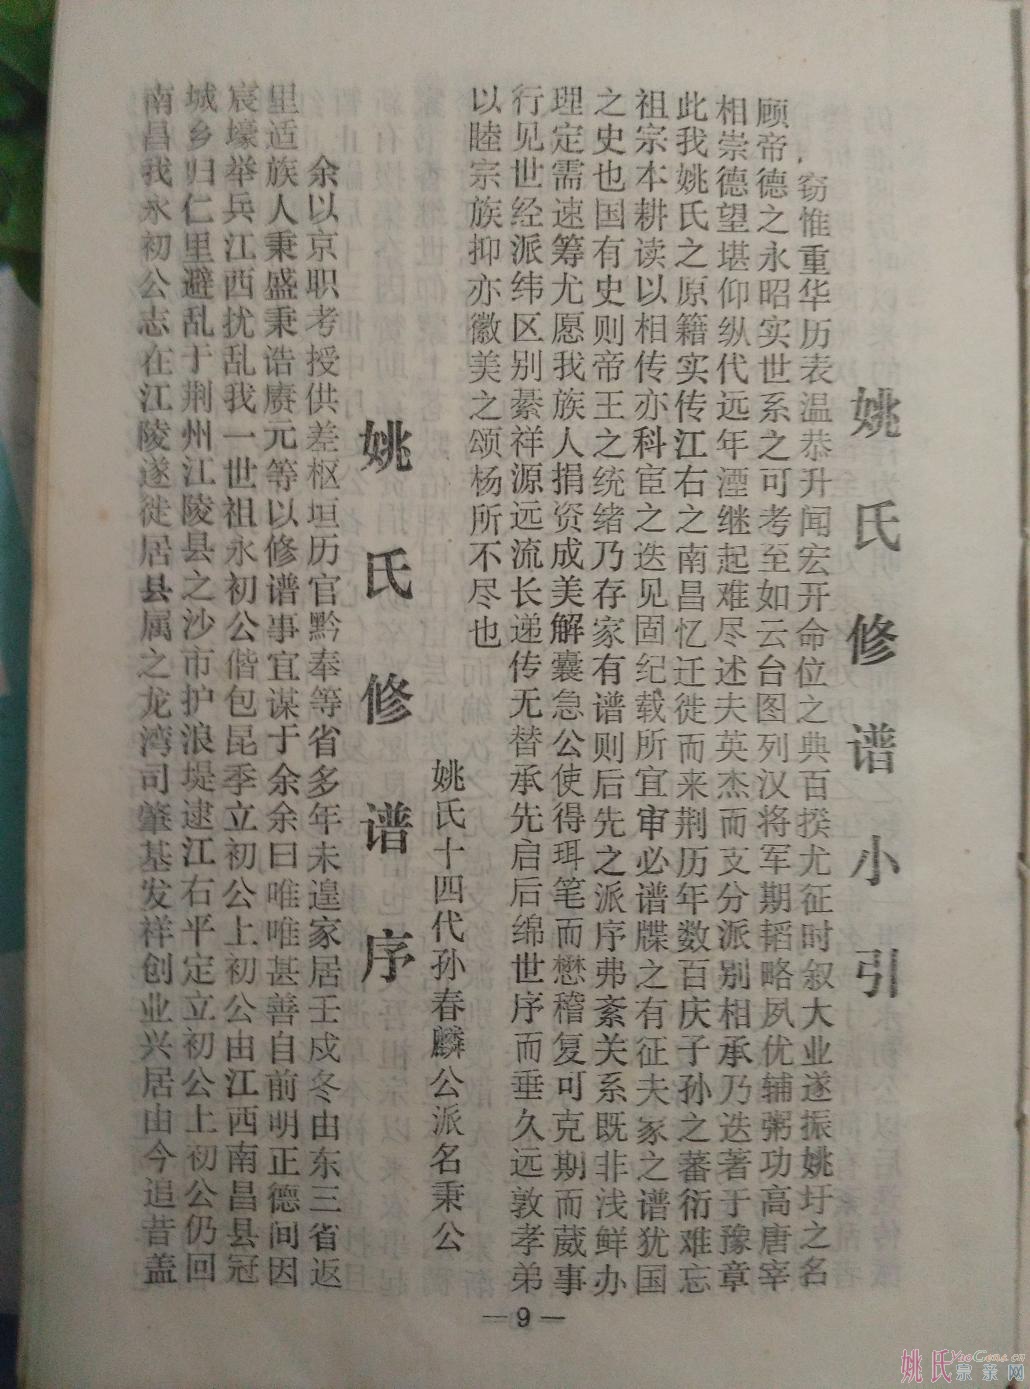 姚氏修谱小引
窃惟重华历表温恭升闻宏开命位之典百揆尤征时叙大业遂振姚圩之名
顾帝德之永昭实世系之可考至如云台图列汉将军期韬略夙优辅弼功高唐宰
相崇德望堪仰纵代远年湮继起难尽述夫英杰而支分派别相承乃迭著于豫章
此我姚氏之原籍实传江右之南昌忆迁徙而来荆历年数百庆子孙之蕃衍难忘
祖宗本耕读以相传亦科宦之迭见固纪载所宜审必谱牒之有征夫家之谱犹国
之史也国有史则帝王之统绪乃存家有谱则后先之派序弗紊关系既非浅鲜办
理定需速筹尤愿我族人捐资成美解囊急公使得珥笔而懋稽复可克期而蒇事
行见世经派纬区别綦祥源远流长递传无替承先启后绵世序而垂久远敦孝弟
以睦宗族抑亦徽美之颂杨所不尽也
姚氏十四代孙春麟公派名秉公
姚氏修谱序
余以京职考授供差枢垣历官黔奉等省多年未遑家居壬戍冬由东三省返
里适族人秉盛秉诰赓元等以修谱事宜谋于余余曰唯唯甚善自前明正德间因
宸壕举兵江西扰乱我一世祖永初公偕包昆季立初公上初公由江西南昌县冠
城乡归仁里避乱于荆州江陵县之沙市护浪堤逮江右平定立初公上初公仍回
南昌我永初公志在江陵遂徙居县属之龙湾司肇基发祥创业兴居由今追昔盖
—9—
姚氏宗亲网
YaoGens.cn